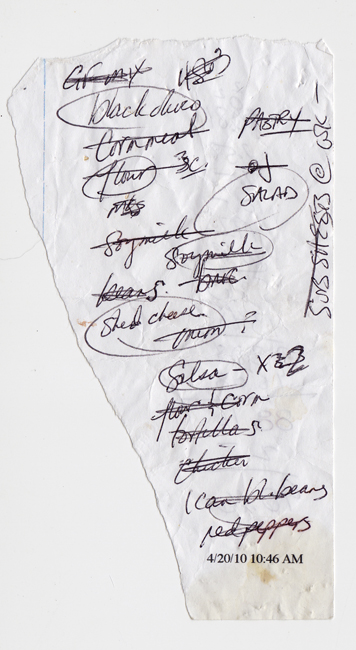 GF mix
black olives
PASTRY
Cornmeal
flour 3c.
OJ
SALAD
Soymilk
Soymilk
beans.
Shred cheese
onion?
Salsa - X
flour & corn
tortillas
1 can bl. beans
red peppers
4/20/10 10:46 AM
SUB SHEETS @